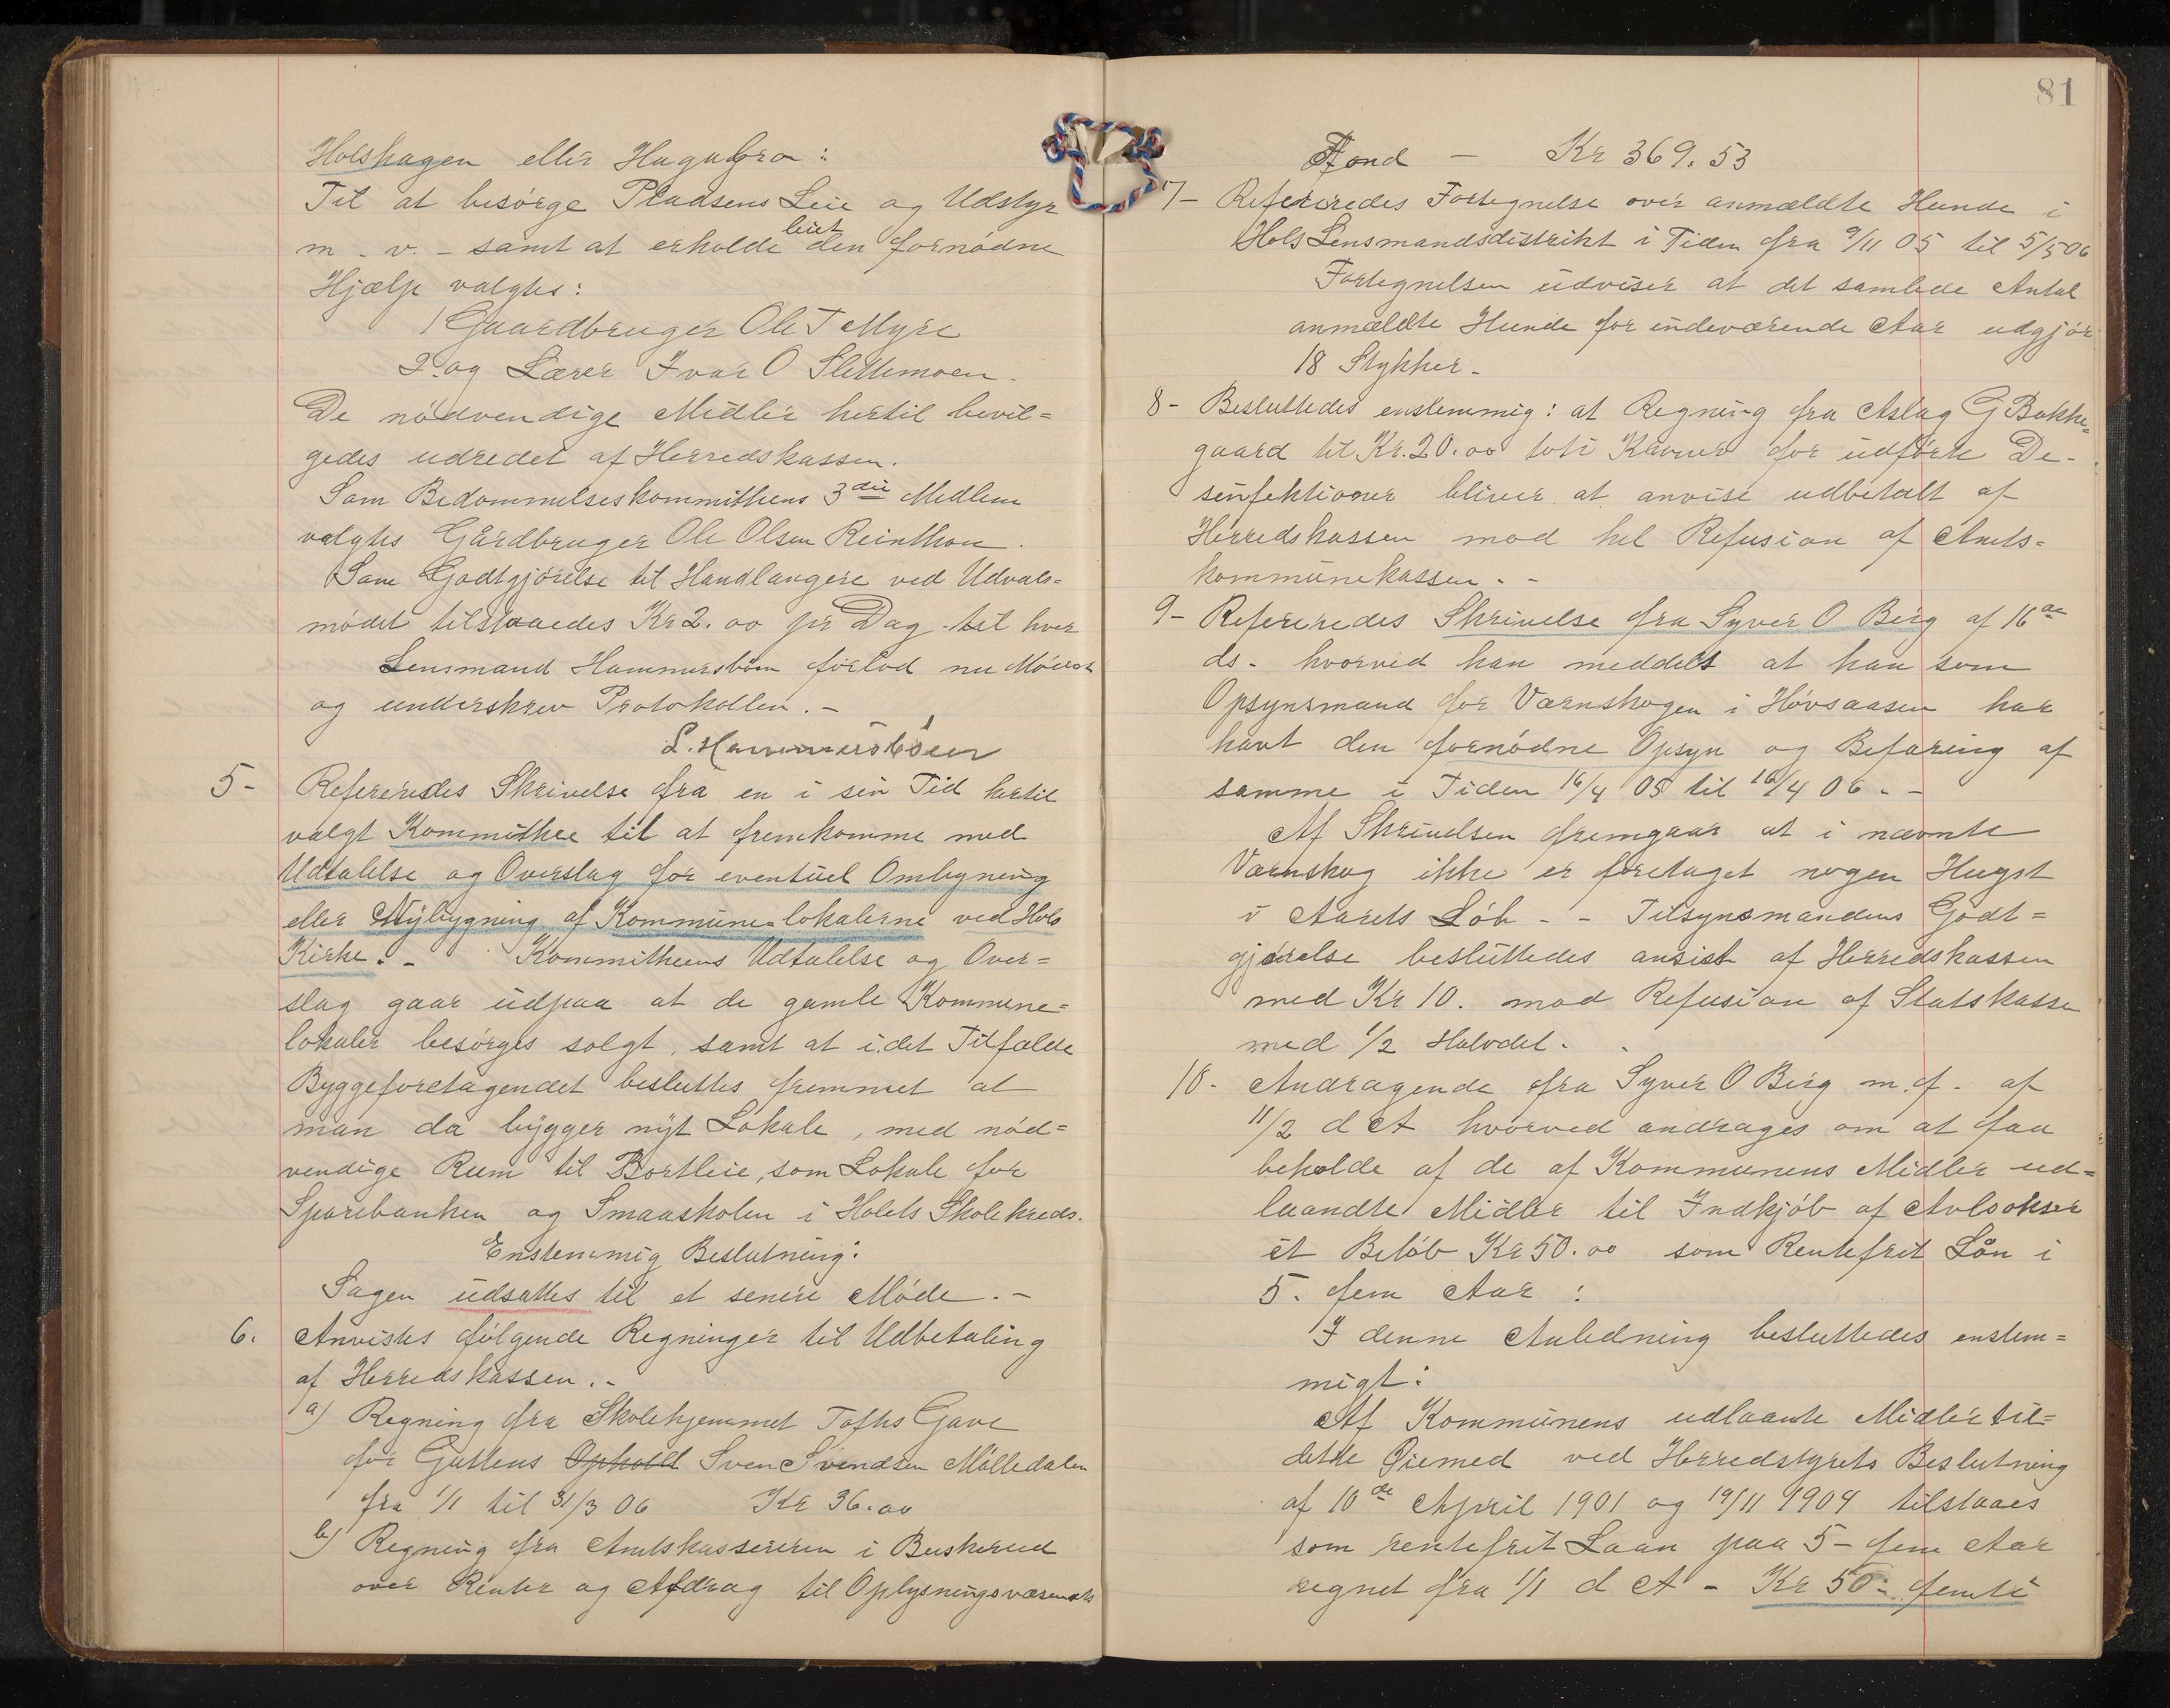 Holshagen eller Hagabra:
Til at besørge Pladsens Leie og Udstyr
m. v. - samt at erholde leiet den fornødne
Hjælp valgtes:
1 Gaardbruger Ole T Myre
2. og Lærer Ivar O Slettemoen.
De nødvendige Midler hertil bevil=
gedes udredet af Herredskassen.
Som Bedømmelseskommitheens 3die Medlem
valgtes Gårdbruger Ole Olsen Reinthon.
Som Godtgjørelse til Handlangere ved Udvals=
mødet tilstaaedes Kr 2.00 pr Dag til hver
Lensmand Hammersbøen forlod nu Mødet
og underskrev Protokollen. -
L. Hammersbøen
5- Refereredes Skrivelse fra en i sin Tid hertil
valgt Kommithee til at fremkomme med
Udtalelse og Overslag for eventuel Ombygning
eller Nybygning af Kommunelokalerne ved Hols
Kirke. - Kommitheens Udtalelse og Over=
slag gaar udpaa at de gamle Kommune=
lokaler besørges solgt, samt at i det Tilfælde
Byggeforetagendet besluttes fremmet at
man da bygger nyt Lokale, med nød=
vendige Rum til Bortleie, som Lokale for
Sparebanken og Smaaskolen i Holets Skolekreds.
Enstemmig Beslutning:
Sagen udsattes til et senere Møde. -
6. Anvistes følgende Regninger til Udbetaling
af Herredskassen. -
a) Regning fra Skolehjemmet Tofths Gave
for Guttens Ophold Sven Svendsen Mølledalen
fra 1/1 til 31/3 06 Kr 36.00
b) Regning fra Amtskassereren i Buskerud
over Renter og Afdrag til Oplysningsvæsenets
81
Fond - Kr 369.53
7- Refereredes Fortegnelse over anmældte Hunde i
Hols Lensmandsdistrikt i Tiden fra 9/11 05 til 5/5 06
Fortegnelsen udviser at det samlede Antal
anmældte Hunde for indeværende Aar udgjør
18 Stykker -
8- Besluttedes enstemmig: at Regning fra Aslag G Bakke=
gaard til Kr. 20.00 toti Kroner for udførte De-
sinfektioner bliver at anvise udbetalt af
Herredskassen mod hel Refusion af Amts=
kommunekassen. -
9- Refereredes Skrivelse fra Syver O Berg af 16de
ds. hvorved han meddelt at han som
Opsynsmand for Værnskogen i Høvsaasen har
havt den fornødne Opsyn og Befaring af
samme i Tiden 16/4 05 til 16/4 06. -
Af Skrivelsen fremgaar at i nævnte
Værnskog ikke er foretaget nogen Hugst
i Aarets Løb - - Tilsynsmandens Godt=
gjørelse besluttedes anvist af Herredskassen
med Kr 10. mod Refusion af Statskassen
med 1/2 Halvdel.
10. Andragende fra Syver O Berg m. f. af
11/2 d A hvorved andrages om at faa
beholde af de af Kommunens Midler ud=
laandte Midler til Indkjøb af Avlsokser
et Beløb Kr 50.00 som Rentefrit Lån i
5. fem Aar :
I denne Anledning besluttedes enstem=
migt:
Af Kommunens udlaante Midler til=
dette Øiemed ved Herredstyrets Beslutning
af 10de April 1901 og 19/11 1904 tilstaaes
som rentefrit Laan paa 5- fem Aar
regnet fra 1/1 d A - Kr 50 - femti